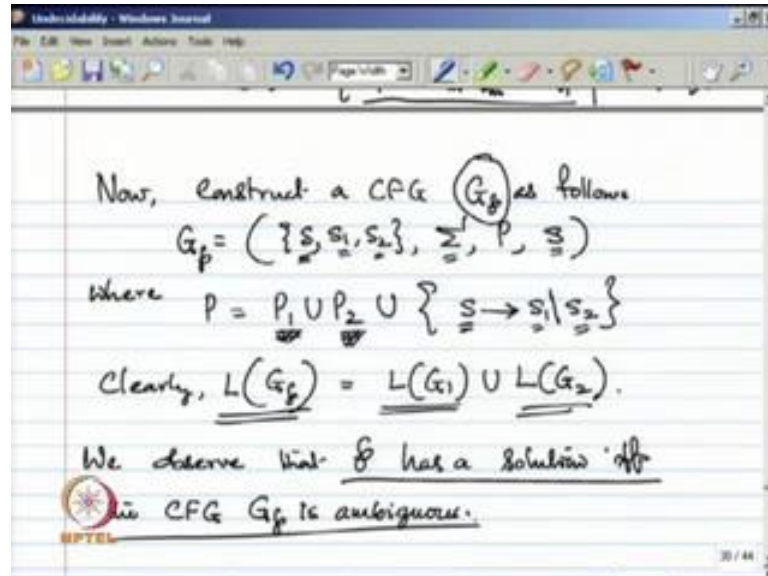 Undecidability - Windows Journal
File Edit View Insert Actions Tools Help
Page Width
Now, Construct a CFG G℘ as follows
G℘ = ({S, S₁, S₂}, Σ', P, S)
where P = P₁ ∪ P₂ ∪ { S → S₁ | S₂ }
Clearly, L(G℘) = L(G₁) ∪ L(G₂).
We observe that ℘ has a solution iff
the CFG G℘ is ambiguous.
NPTEL
30 / 44